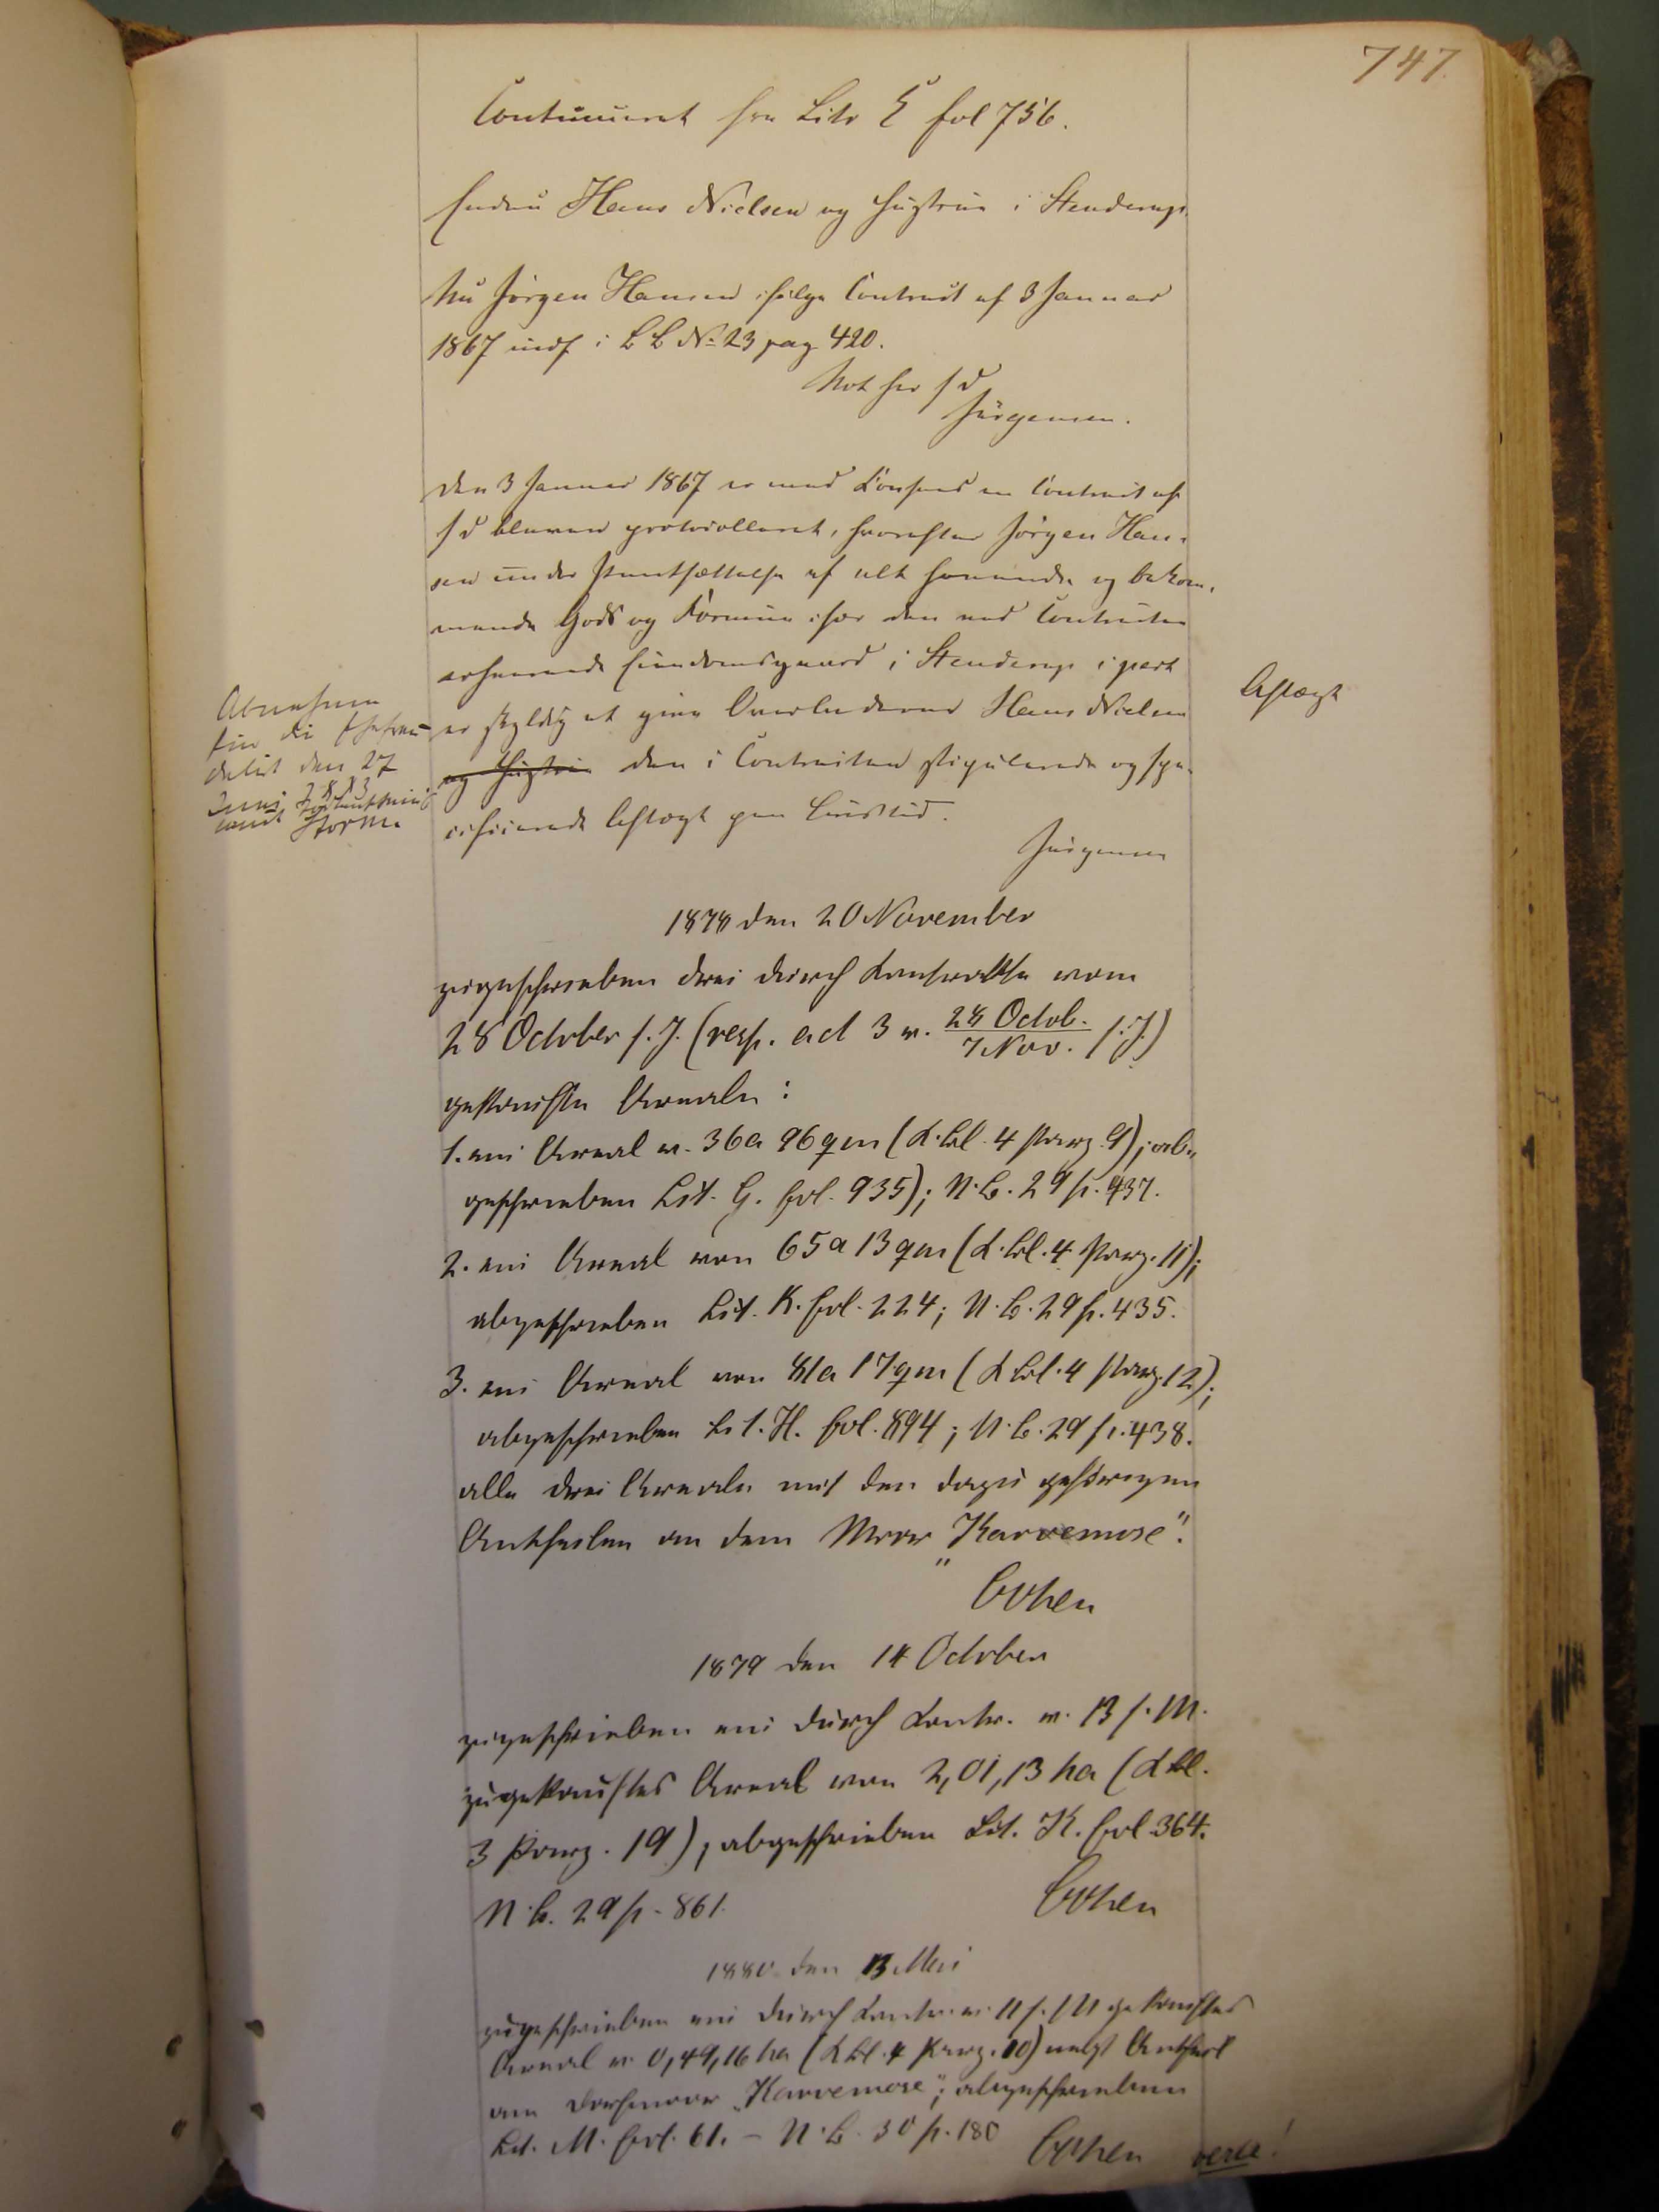 747.
Continueret fra Litr E fol 756.
Endnu Hans Nielsen og Hustrue i Stenderup.
Nu Jörgen Hansen ifölge Contract af 3 Januar
1867 indf i B B No 23 pag 420.
Not her s d
Jürgensen.
Den 3 Januar 1867 er med Konsens en Contract af
s d bleven protocolleret, hvorefter Jörgen Han-
sen under Pantsættelse af alt havende og bekom-
mende Gods og Formue især den ved Contracten
erhvervede Eiendomsgaard i Stenderup i part
er skyldig at give Overladeren Hans Nielsen
og Hustru den i Contracten stipulerede og spe-
cificerede Aftægt paa Livstid.
Aftægt
Abnahme
für die Ehefrau
delirt den 27
Juni
Jürgensen
1878 den 20 November
zugeschrieben drei durch Kontrakte vom
28 October d. J. (resp. ad 3 v. 28 Octob. / 7 Nov. d. J.)
gekaufte Areale:
1. ein Areal v. 36 a 96 qm (K. bl. 4 Parz. 9); ab-
geschrieben Lit. G. fol. 935); N. B. 29 p. 437.
2. ein Areal von 65 a 13 qm (K. bl. 4. Parz. 11);
abgeschrieben Lit. K. fol. 224; N. B. 29 p. 435.
3. ein Areal von 81 a 17 qm (K bl. 4 Parz. 12);
abgeschrieben Lit. H. fol. 894; N. B. 29 p. 438.
alle drei Areale mit den dazu gehörigen
Antheilen an dem Moor "Karvemose".
Cohen
1879 den 14 October
zugeschrieben ein durch Kontr. v. 13 d. M.
zugekauftes Areal von 2,01,13 ha (K bl.
3 Parz. 19), abgeschrieben Lit. K. fol. 364.
N. B. 29 p. 861.
Cohen
1880 den 13 Mai
zugeschrieben ein durch Kontr. v. 11 d. M gekauftes
Areal v. 0,49,16 ha (K bl. 4 Parz. 10) nebst Antheil
am Dorfmoor "Karvemose"; abgeschrieben
Lit. M. fol. 61. – N. B. 30 p. 180
Cohen
verte!